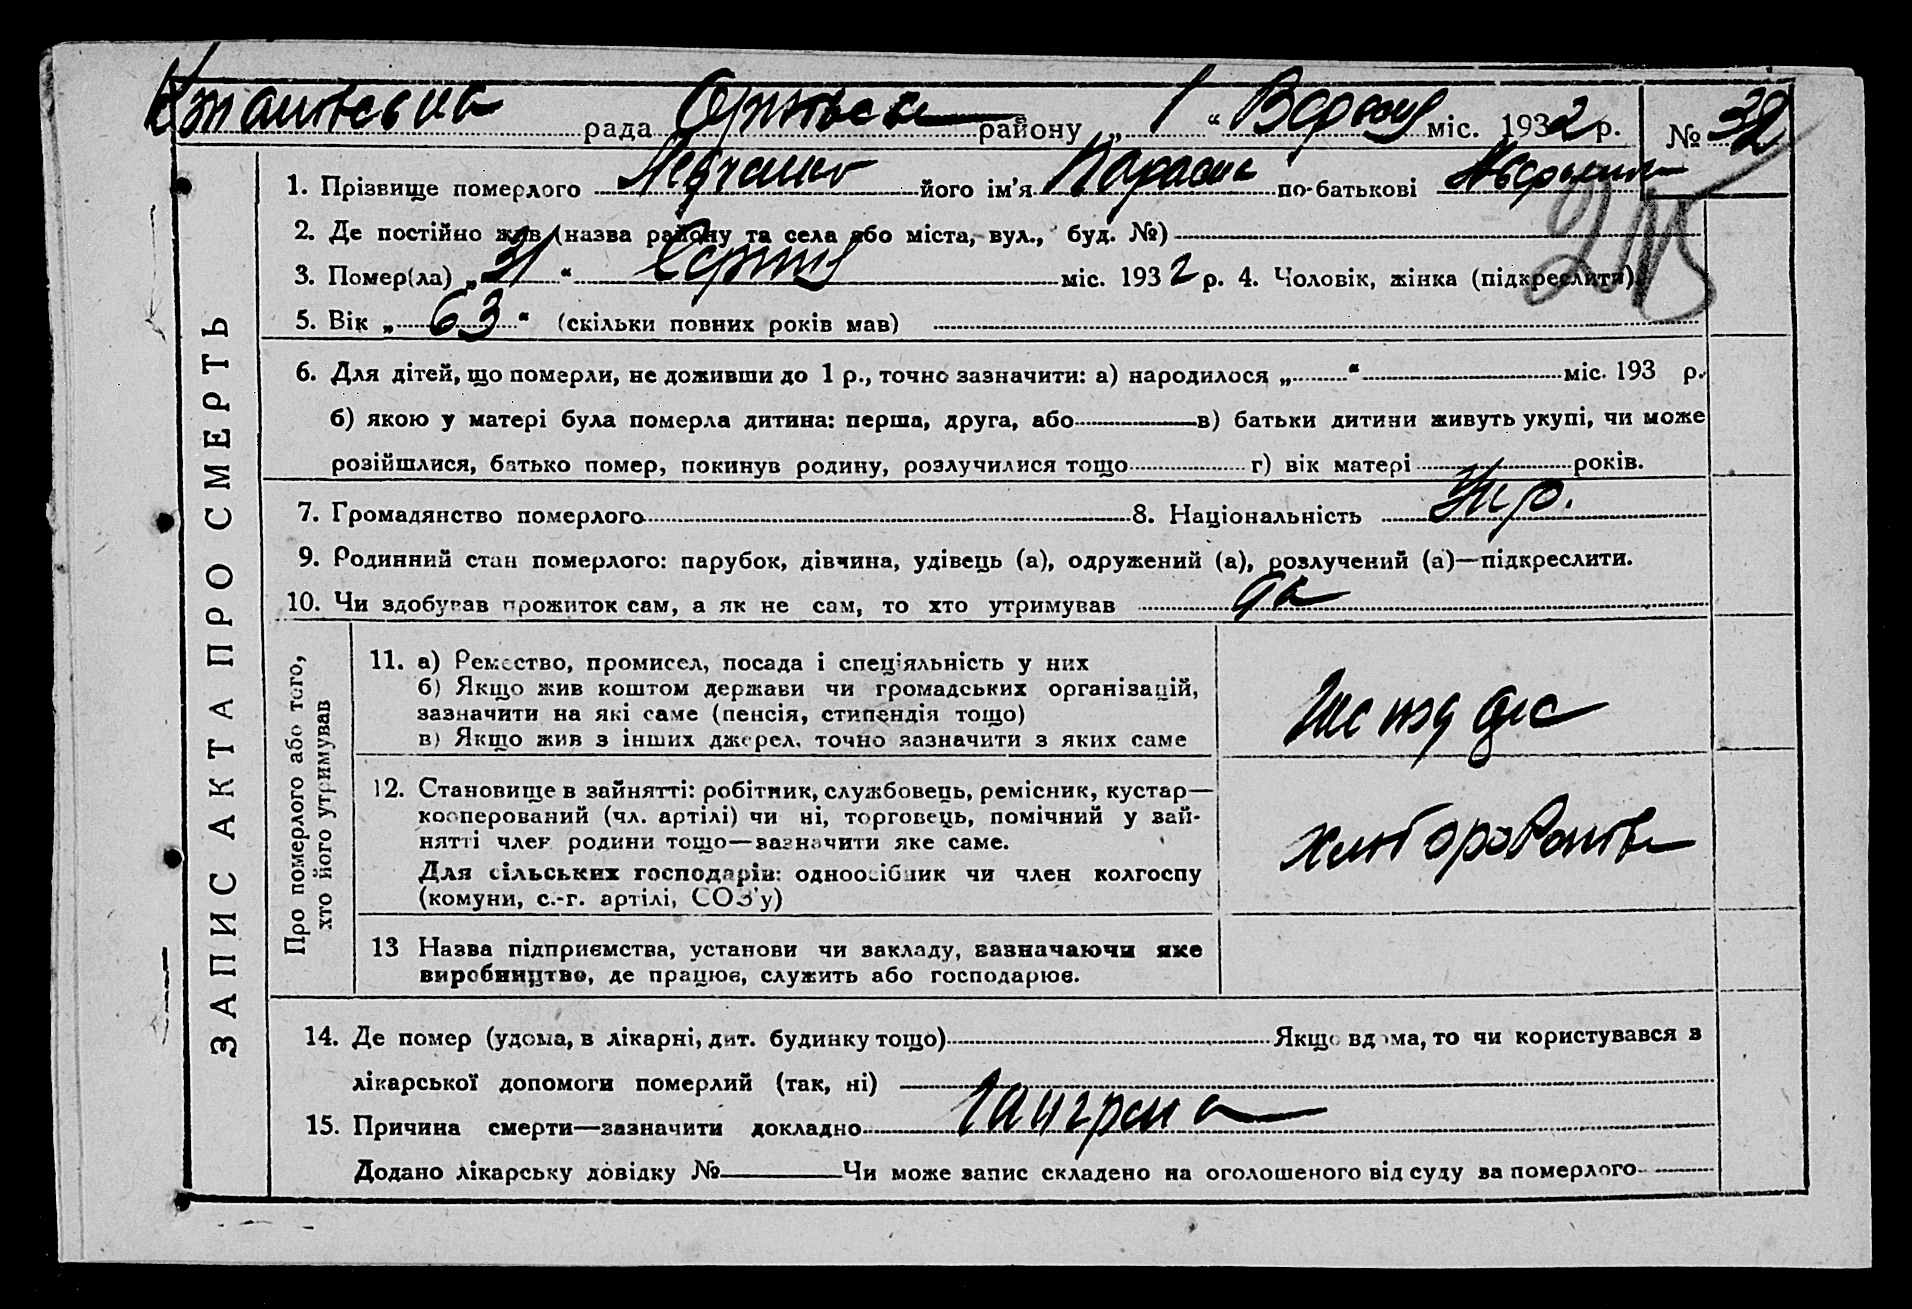 рада района „ 1 “ міс. 1932 р. № 32
ЗАПИС АКТА ПРО СМЕРТЬ
1. Прізвище померлого його ім'я Параска по-батькові
2. Де постійно жив (назва району та села або міста, вул., буд. №)
3. Помер(ла) „ 31 “ Серпня міс. 1932 р. 4. Чоловік, жінка (підкреслити)
5. Вік „ 63 “ (скільки повних років мав)
6. Для дітей, що померли, не доживши до 1 р., точно зазначити: а) народилося „ “ міс. 193 р.
б) якою у матері була померла дитина: перша, друга, або в) батьки дитини живуть укупі, чи може
розійшлися, батько помер, покинув родину, розлучилися тощо г) вік матері років.
7. Громадянство померлого 8. Національність Укр.
9. Родинний стан померлого: парубок, дівчина, удівець (а), одружений (а), розлучений (а)—підкреслити.
10. Чи здобував прожиток сам, а як не сам, то хто утримував да
Про померлого або того,
хто його утримував
11. а) Ремество, промисел, посада і спеціяльність у них
б) Якщо жив коштом держави чи громадських організацій,
зазначити на які саме (пенсія, стипендія тощо)
в) Якщо жив з інших джерел, точно зазначити з яких саме
12. Становище в зайнятті: робітник, службовець, ремісник, кустар—
кооперований (чл. артілі) чи ні, торговець, помічний у зай-
нятті член родини тощо—зазначити яке саме.
Для сільських господарів: одноосібник чи член колгоспу
(комуни, с.-г. артілі, СОЗ'у)
13 Назва підприємства, установи чи закладу, зазначаючи яке
виробництво, де працює, служить або господарює.
14. Де помер (удома, в лікарні, дит. будинку тощо) Якщо вдома, то чи користувався з
лікарської допомоги померлий (так, ні)
15. Причина смерти—зазначити докладно Гангрена
Додано лікарську довідку № Чи може запис складено на оголошеного від суду за померлого